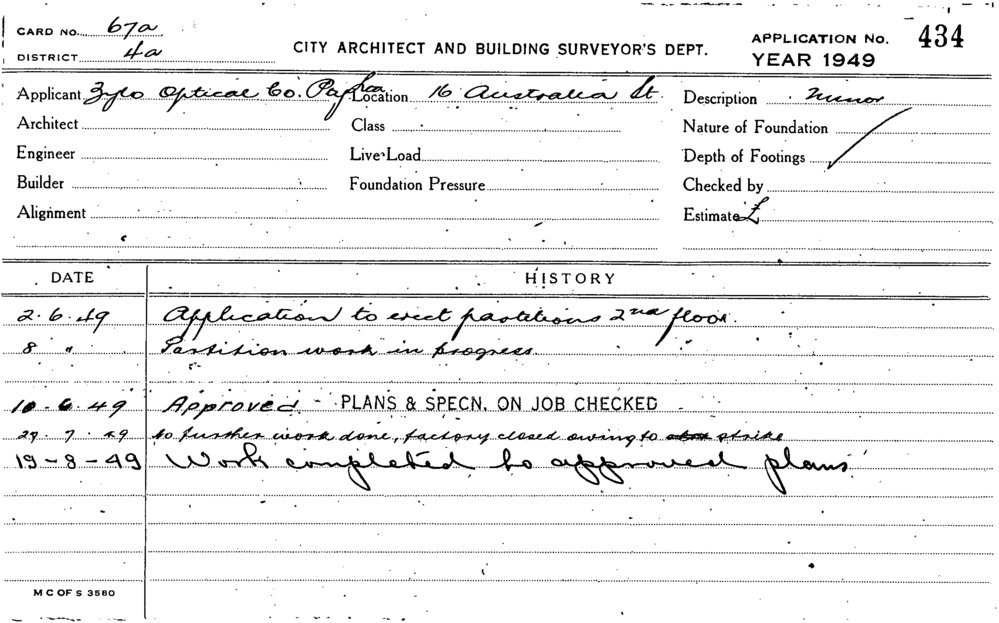 CARD NO. 67a
DISTRICT 4a
CITY ARCHITECT AND BUILDING SURVEYOR'S DEPT.
APPLICATION No. 434
YEAR 1949
Applicant Zylo Optical Co.
Location 16 Australia St.
Description Minor
Architect
Class
Nature of Foundation
Engineer
Live Load
Depth of Footings
Builder
Foundation Pressure
Checked by
Alignment
Estimate £
DATE HISTORY
2.6.49 Application to erect partitions 2nd floor.
8 " Partition work in progress.
10.6.49 Approved - PLANS & SPECN. ON JOB CHECKED
29.7.49 further work done, factory closed owing to strike
19-8-49 Work completed to approved plans
M C OF S 3560